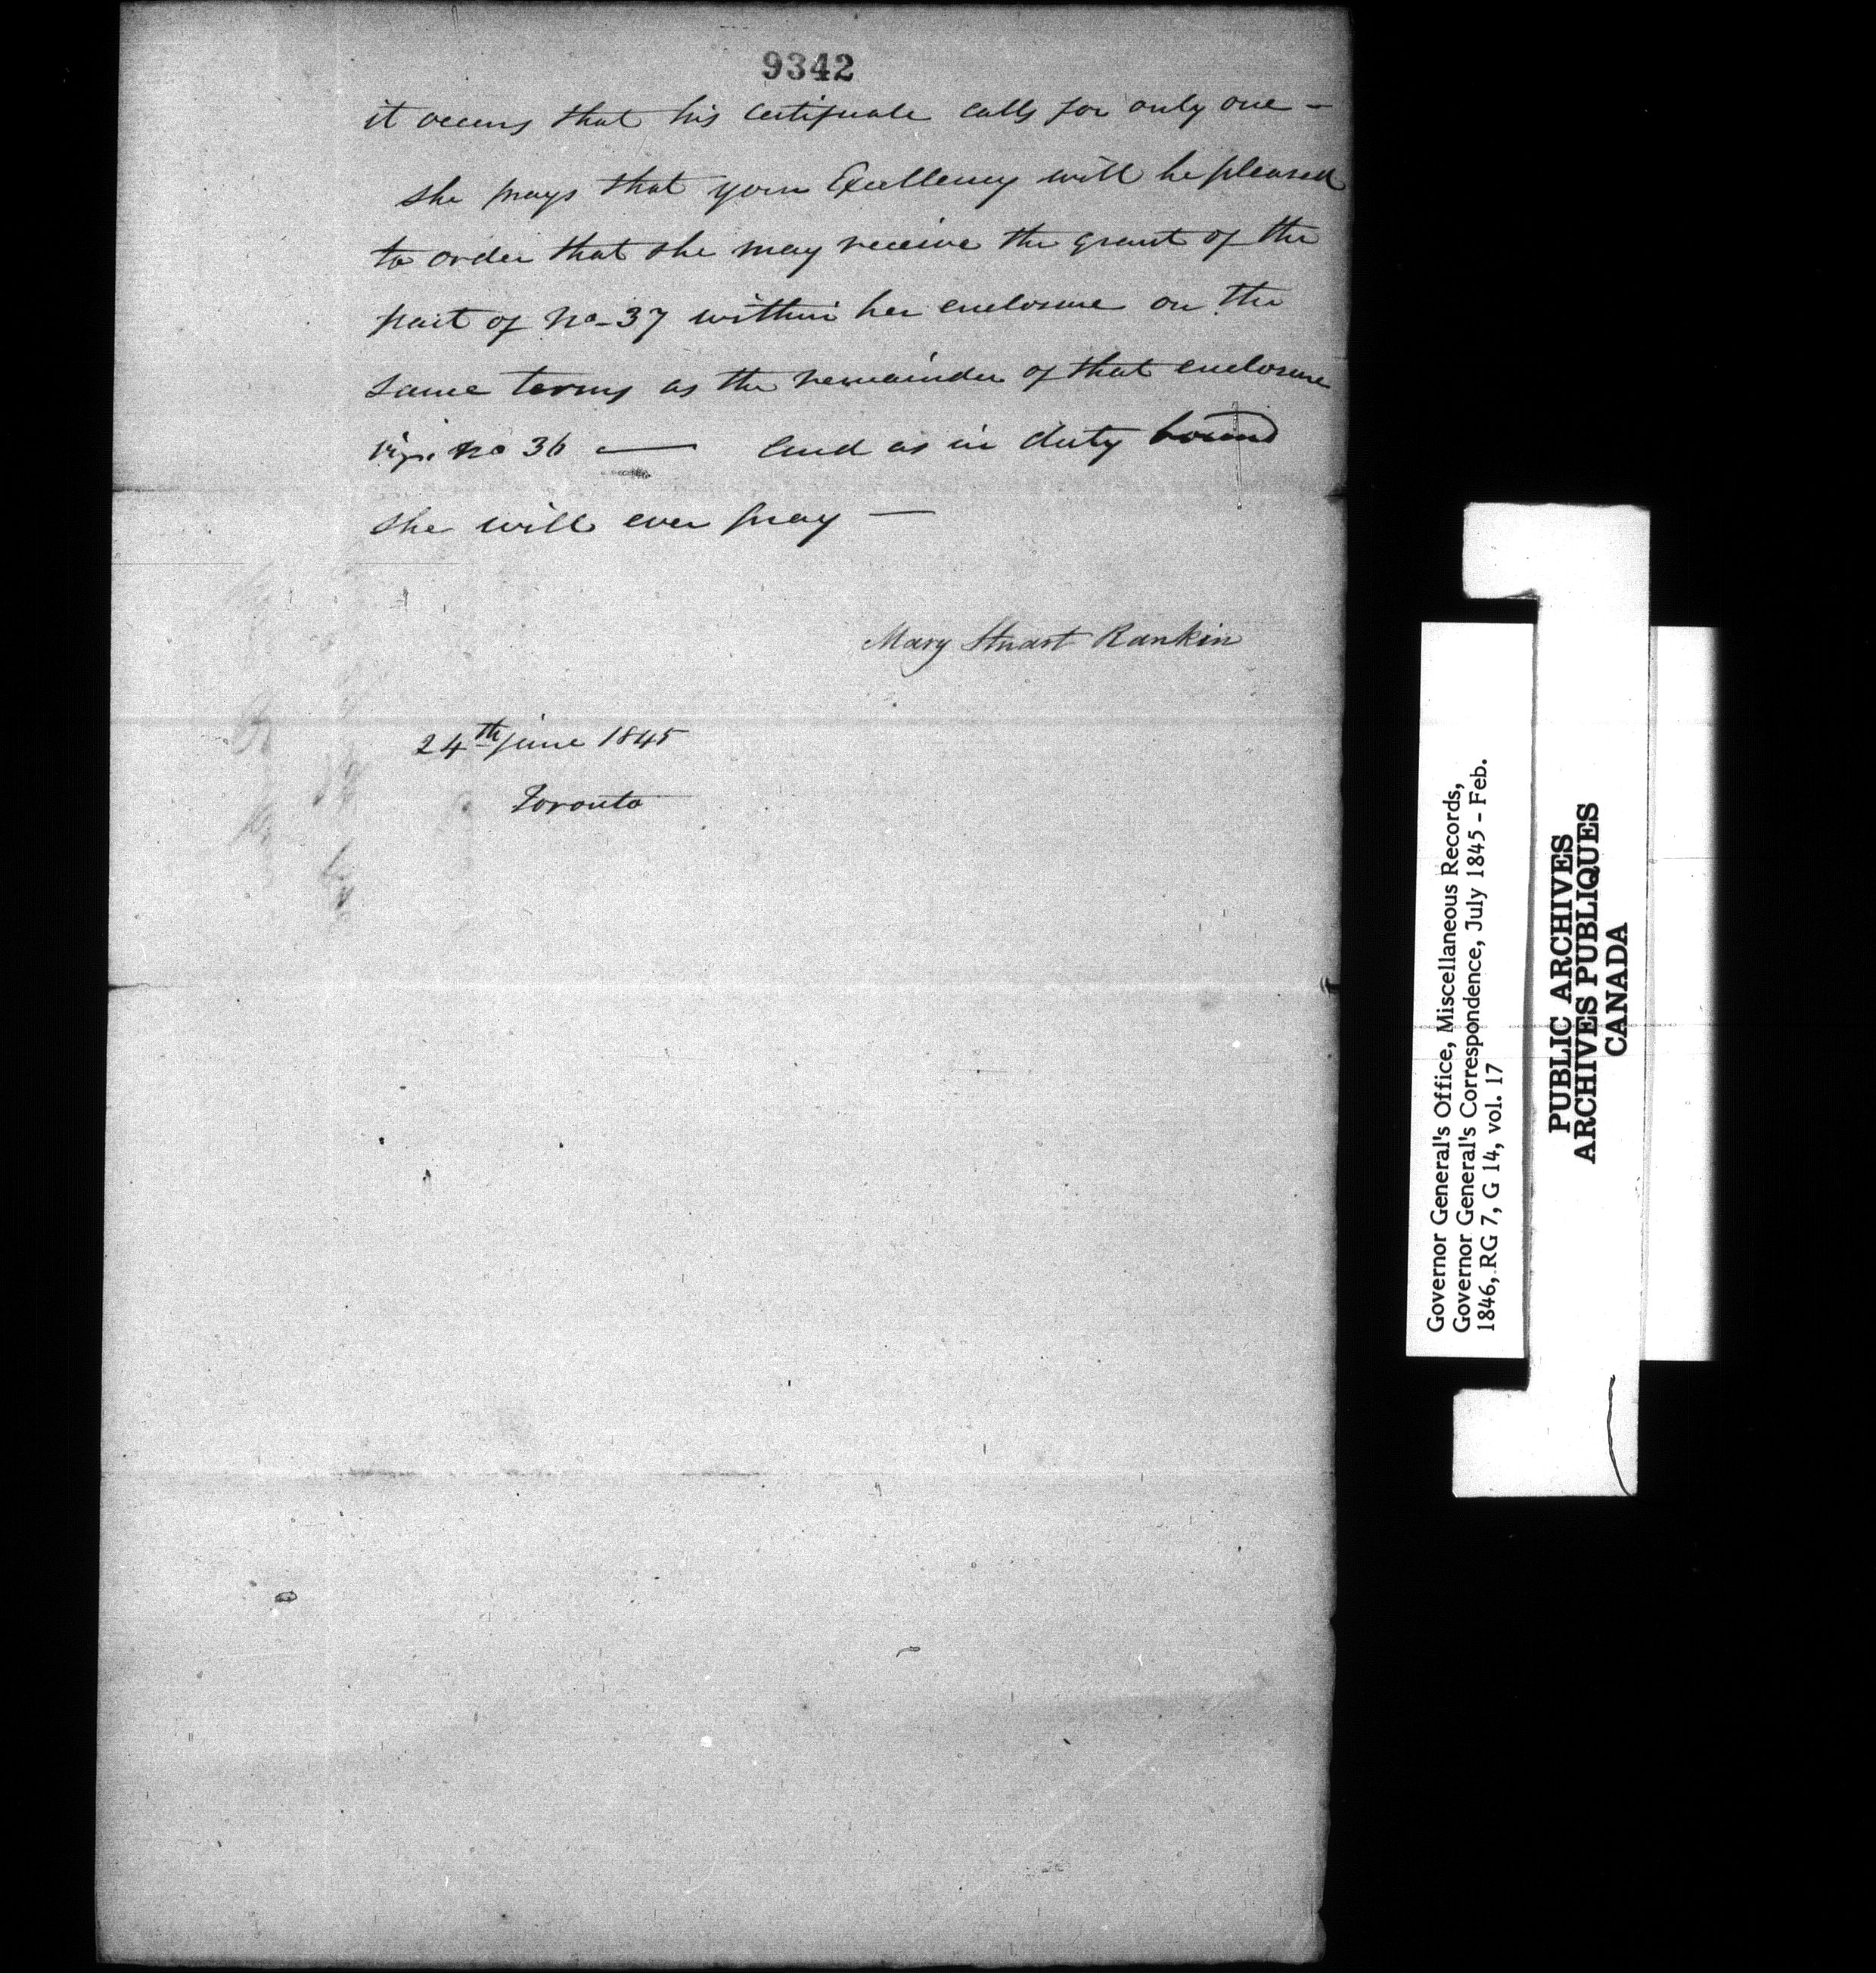 9342
it occurs that his certificate calls for only one –
she prays that your Excellency will be pleased
to order that she may receive the grant of the
part of No. 37 within her enclosure on the
same terms as the remainder of that enclosure
viz. no 36 — and as in duty bound
she will ever pray —
Mary Stuart Rankin
24th june 1845
Toronto
Governor General's Office, Miscellaneous Records,
Governor General's Correspondence, July 1845 - Feb.
1846, RG 7, G 14, vol. 17
PUBLIC ARCHIVES
ARCHIVES PUBLIQUES
CANADA